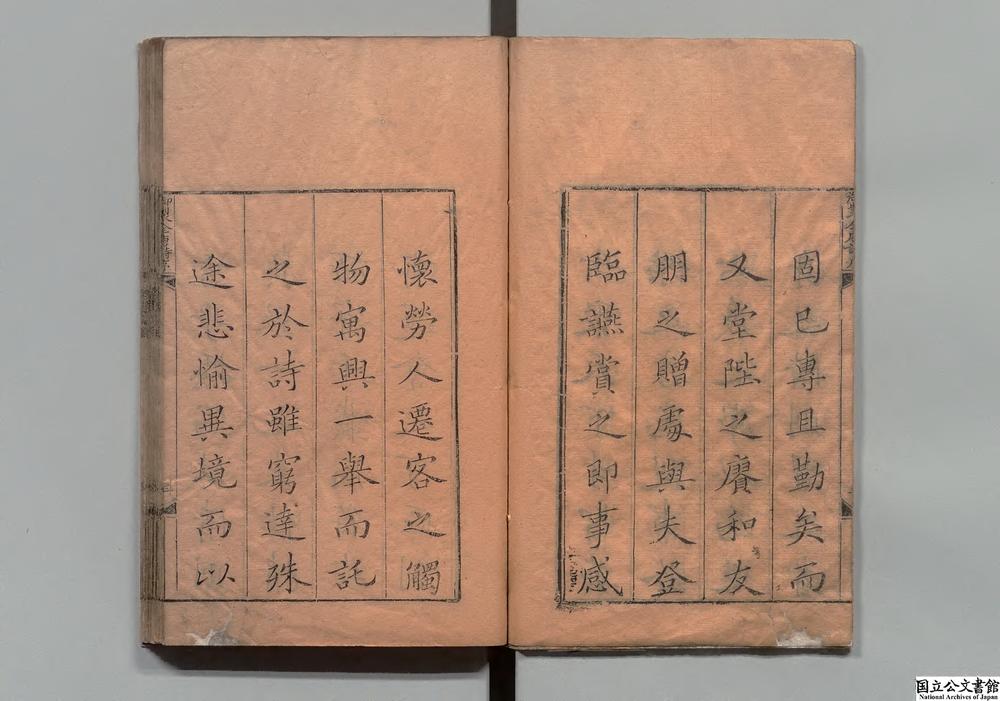 固已專且勤矣而
又堂陛之賡和友
朋之贈處與夫登
臨讌賞之即事感
懷勞人遷客之觸
物寓興一舉而託
之於詩雖窮達殊
途悲愉異境而以
国立公文書館
National Archives of Japan